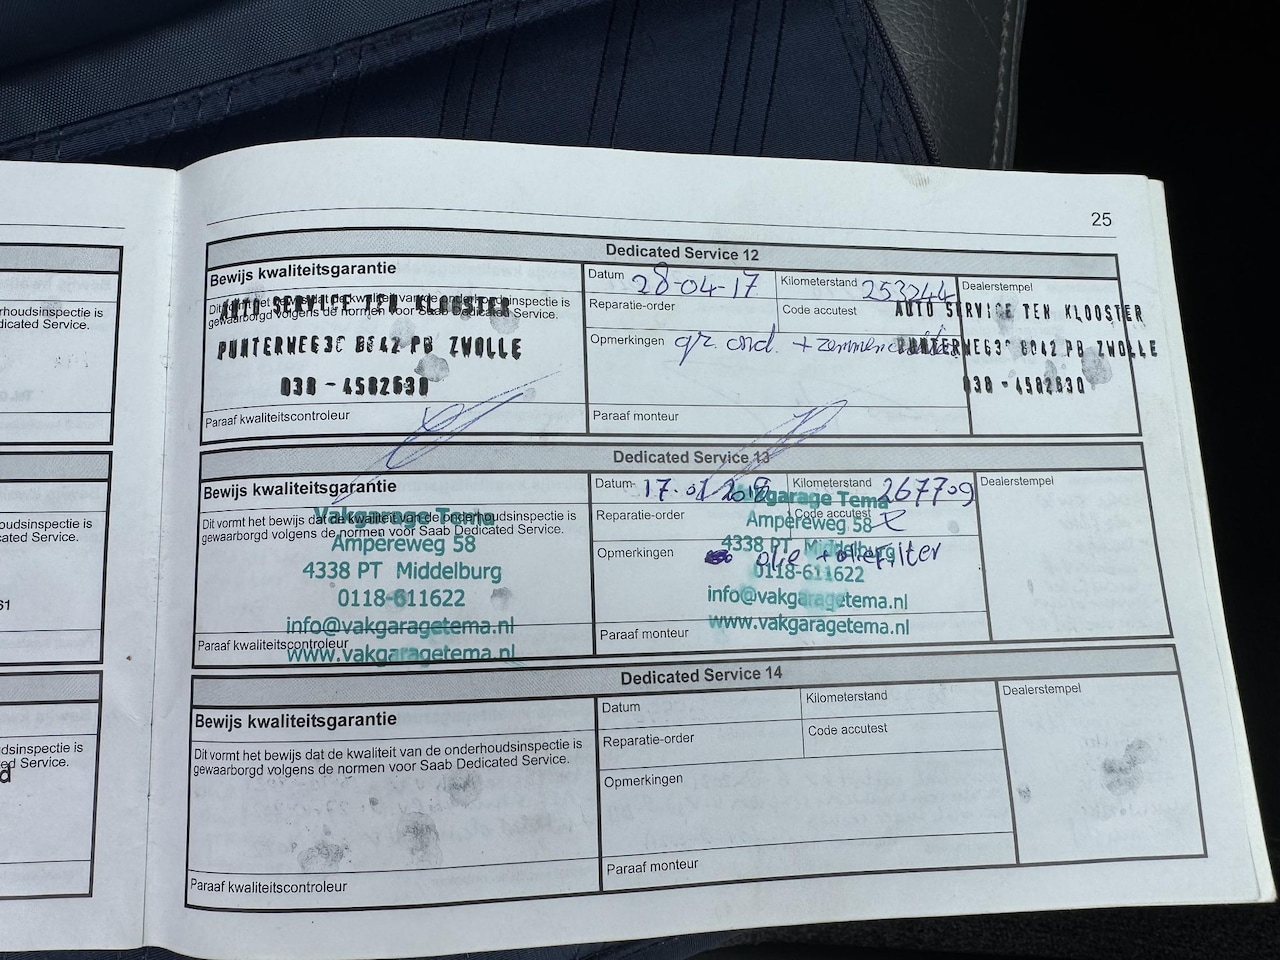 25
Dedicated Service 12
Bewijs kwaliteitsgarantie
Dit vormt het bewijs dat de kwaliteit van de onderhoudsinspectie is
gewaarborgd volgens de normen voor Saab Dedicated Service.
AUTO SERVICE TEN KLOOSTER
PUNTERWEG30 8042 PB ZWOLLE
038 - 4582630
Paraaf kwaliteitscontroleur
Datum 28-04-17
Kilometerstand 253244
Reparatie-order
Code accutest
Opmerkingen gr. ond. +
Paraaf monteur
Dealerstempel
AUTO SERVICE TEN KLOOSTER
PUNTERWEG30 8042 PB ZWOLLE
038 - 4582630
Dedicated Service 13
Bewijs kwaliteitsgarantie
Dit vormt het bewijs dat de kwaliteit van de onderhoudsinspectie is
gewaarborgd volgens de normen voor Saab Dedicated Service.
Vakgarage Tema
Ampereweg 58
4338 PT Middelburg
0118-611622
info@vakgaragetema.nl
www.vakgaragetema.nl
Paraaf kwaliteitscontroleur
Datum
Kilometerstand 267709
Reparatie-order
Code accutest
Opmerkingen olie + oliefilter
Paraaf monteur
Vakgarage Tema
Ampereweg 58
4338 PT Middelburg
0118-611622
info@vakgaragetema.nl
www.vakgaragetema.nl
Dealerstempel
Dedicated Service 14
Bewijs kwaliteitsgarantie
Dit vormt het bewijs dat de kwaliteit van de onderhoudsinspectie is
gewaarborgd volgens de normen voor Saab Dedicated Service.
Paraaf kwaliteitscontroleur
Datum
Kilometerstand
Reparatie-order
Code accutest
Opmerkingen
Paraaf monteur
Dealerstempel